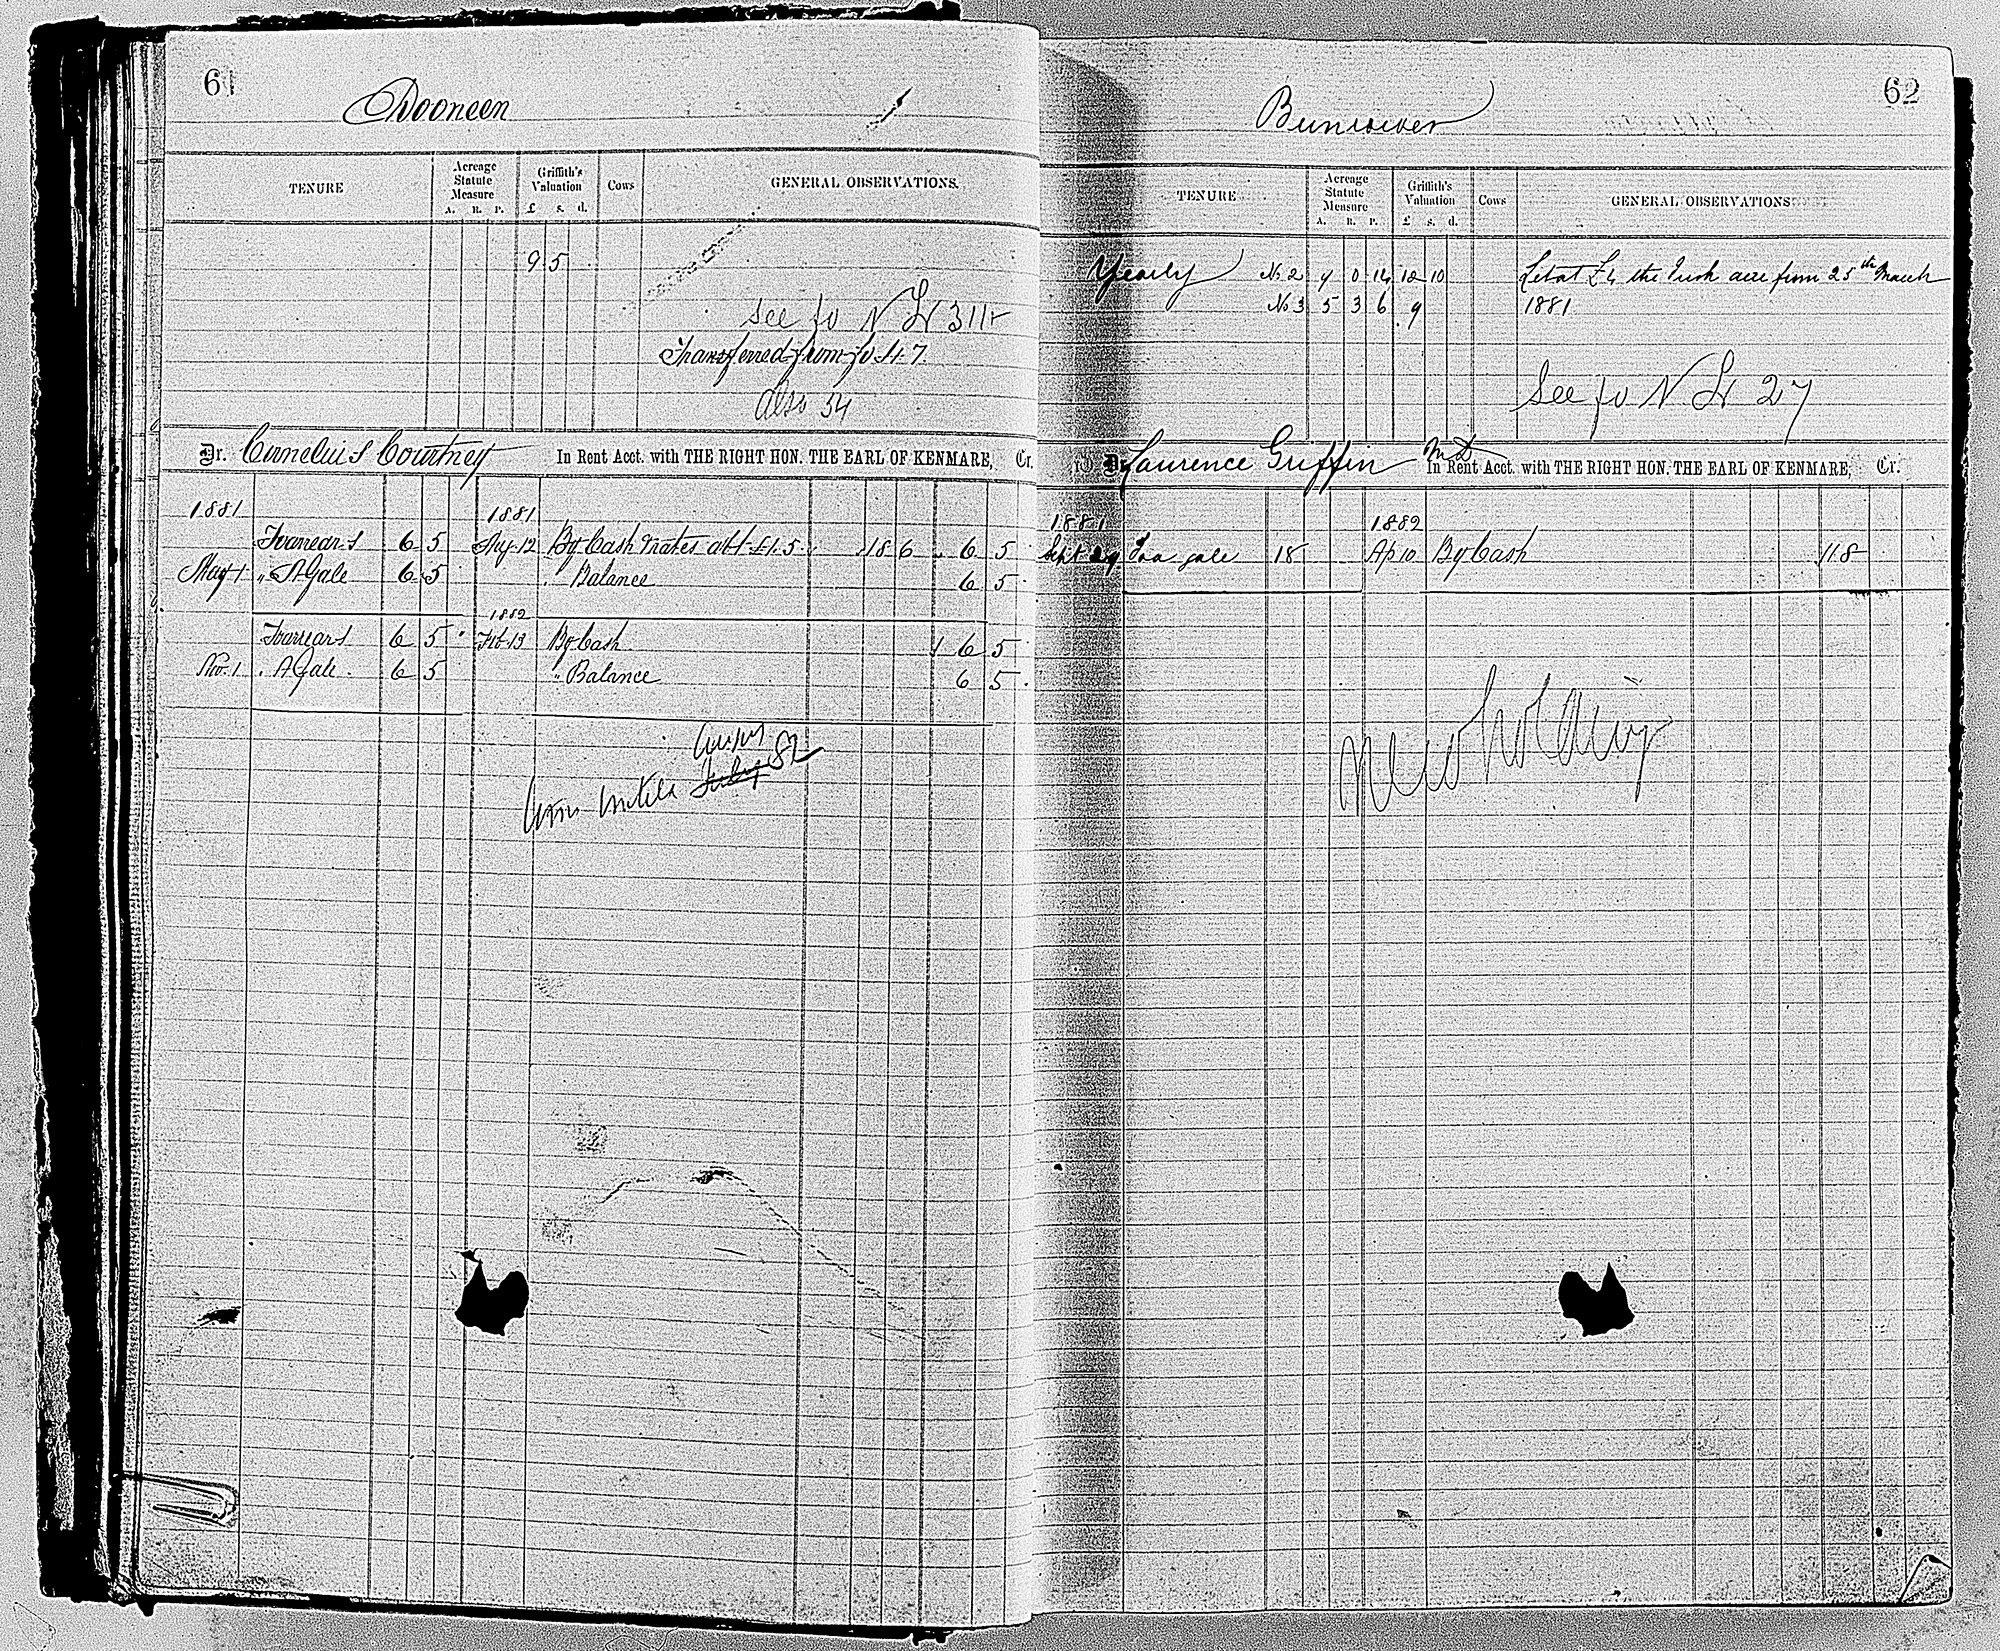 61
Dooneen
TENURE
Acreage Statute Measure A. R. P.
Griffith's Valuation £ s. d.
Cows
GENERAL OBSERVATIONS.
9 5
See fo N Lr 311
Transferred from fo 47
also 54
Dr. Cornelius Courtney In Rent Acct. with THE RIGHT HON. THE EARL OF KENMARE, Cr.
1881 1881
To arrears 6 5 Aug 12 By Cash & rates abt £1.5. 18 6 6 5
May 1 " A Gale 6 5 " Balance 6 5
1882
To arrears 6 5 Feb 13 By Cash 6 5
Nov. 1 " A Gale 6 5 " Balance 6 5
82
until July
62
TENURE
Acreage Statute Measure A. R. P.
Griffith's Valuation £ s. d.
Cows
GENERAL OBSERVATIONS.
Yearly No. 2 9 0 14 12 10 Let at £4 the Irish acre from 25th March
No 3 5 3 6 9 1881
See fo N Lr 27
Dr. Laurence Griffin MD In Rent Acct. with THE RIGHT HON. THE EARL OF KENMARE, Cr.
1881 1882
Sept 29 To a gale 18 Ap 10 By Cash 18
New holding